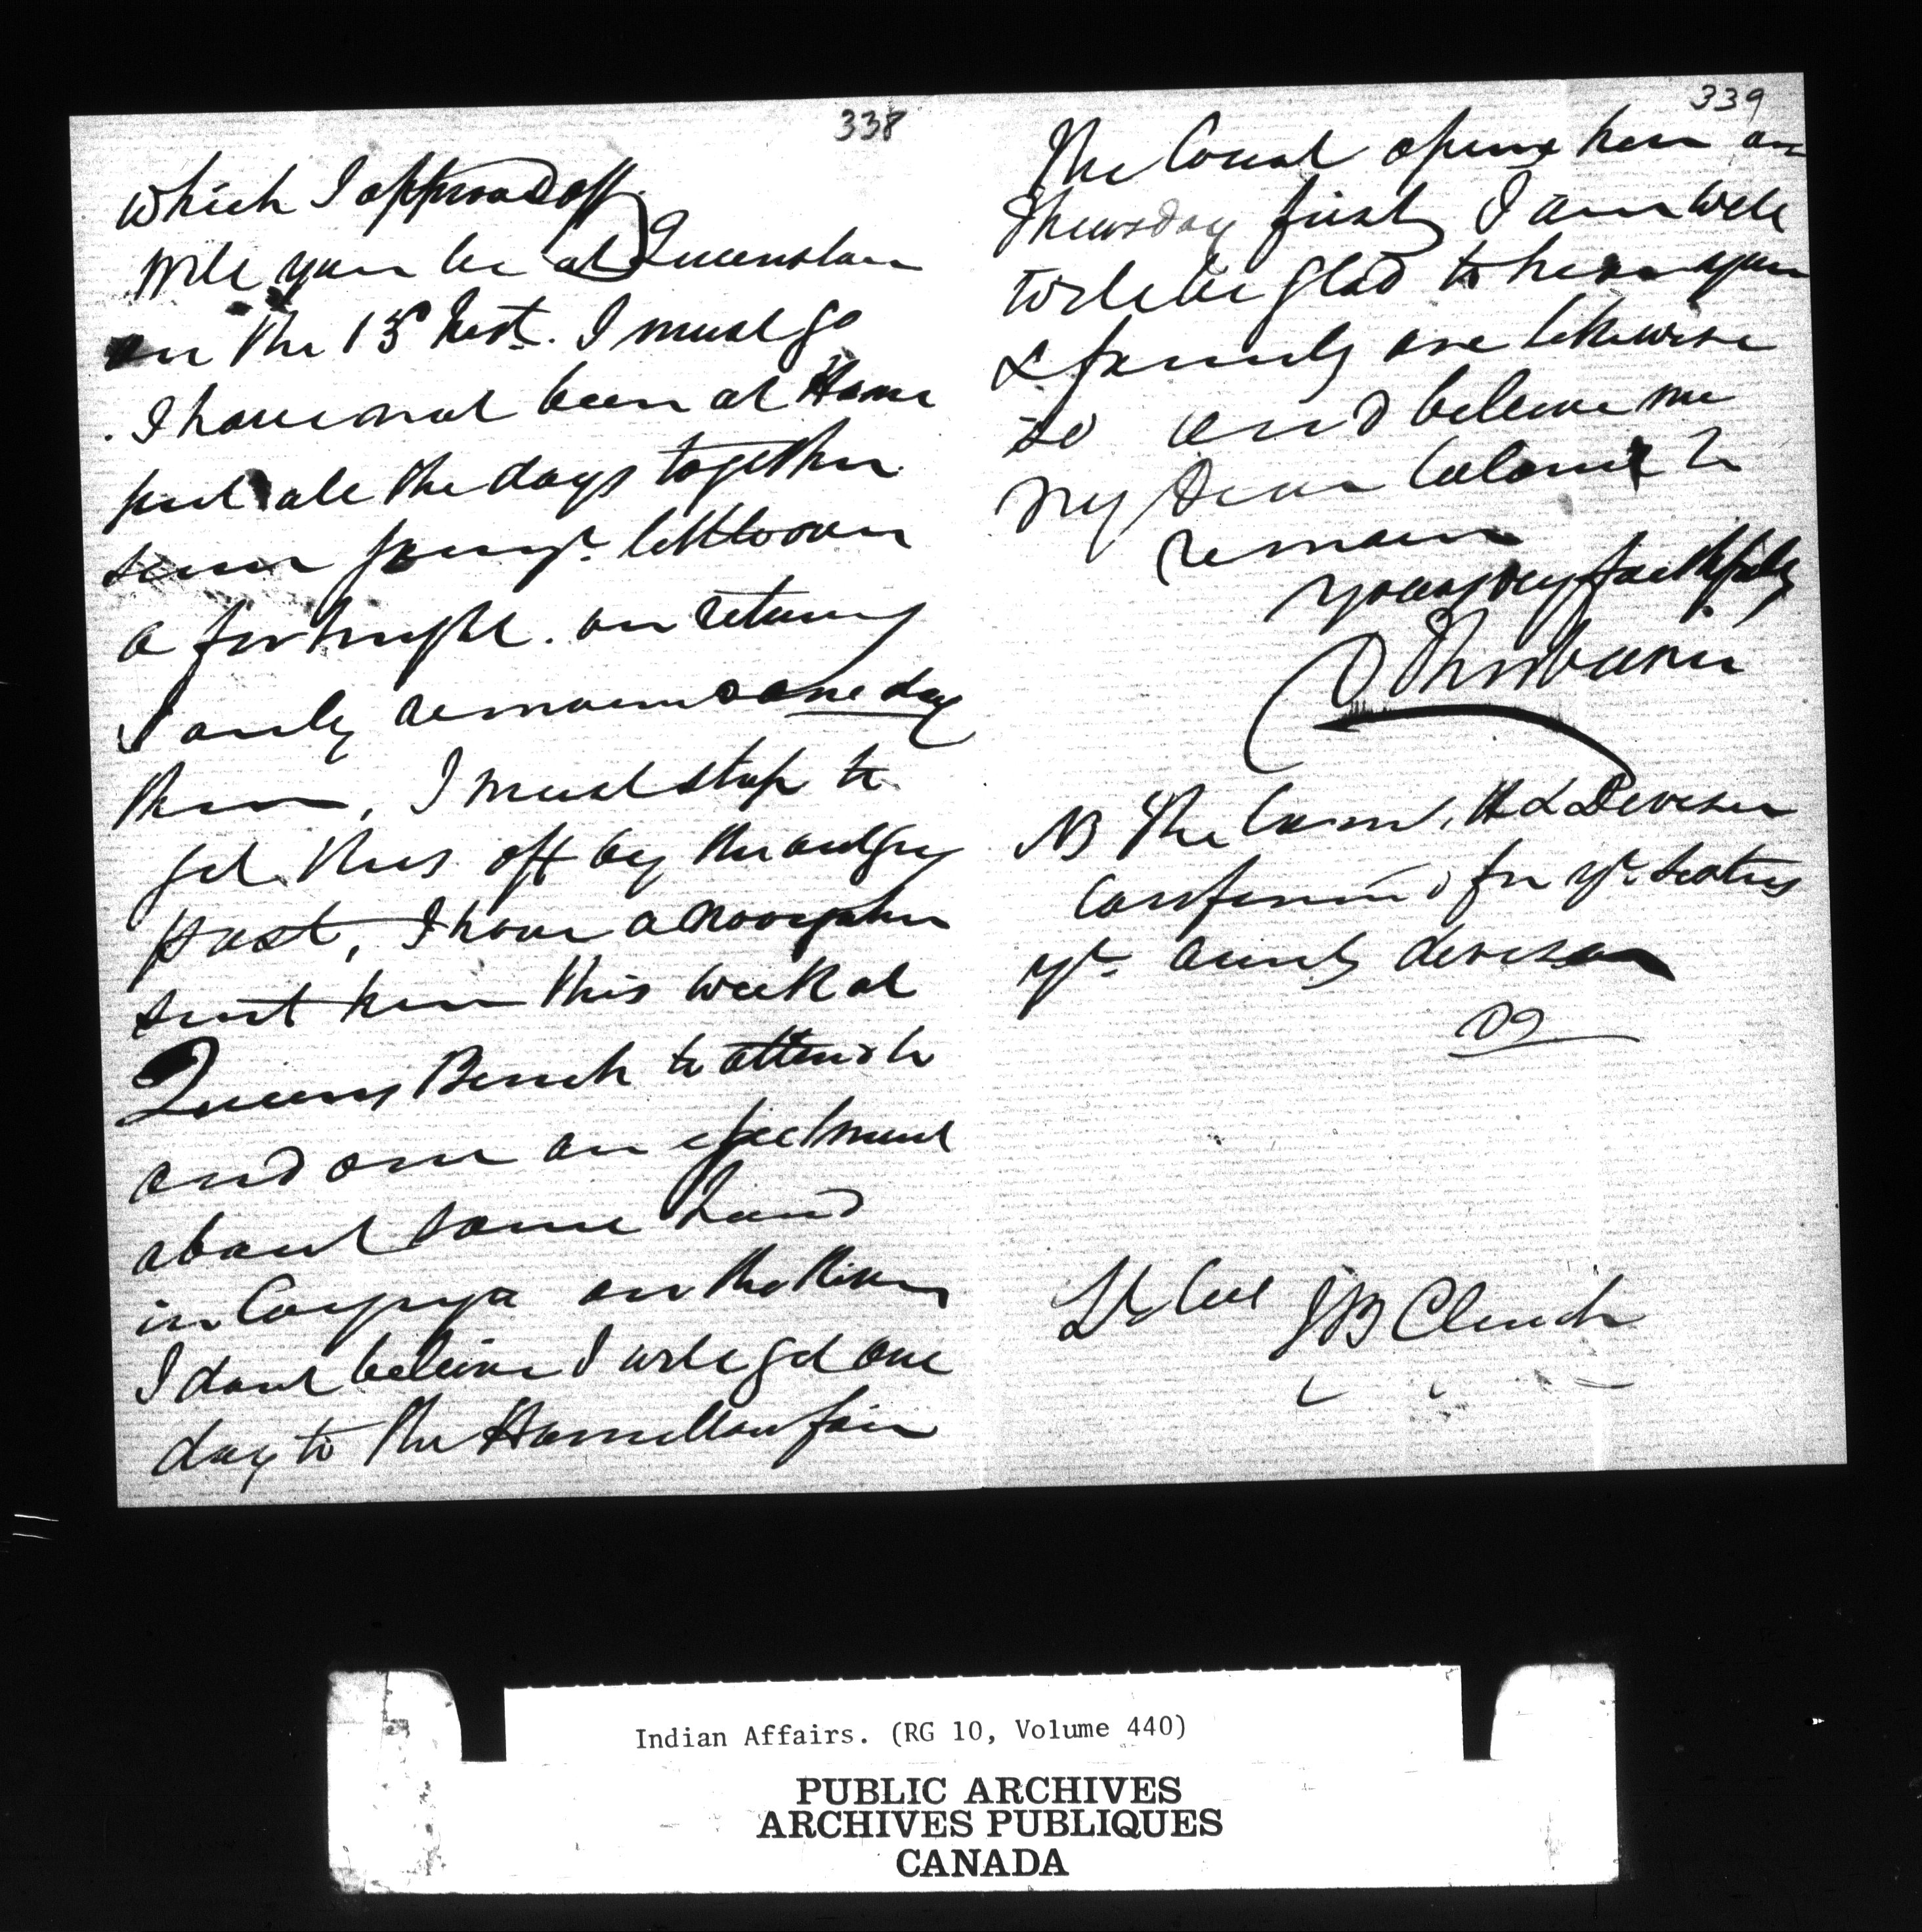 338
which I approved off.
Will you be at Queenston
on the 13 Inst. I must go
I have not been at Home
put all the days together
since
a fortnight. on returning
I only remained one day
then, I must stop to
get this off by the
post, I have a
sent him this week at
Queens Bench to attend to
and one an ejectment
about some Land
in Cayuga on the River
I dont believe I will get one
day to the Hamilton fair
339
The Court opens here on
Thursday first, I am well
will be glad to hear you
& family are likewise
so and believe me
My Dear Colonel to
remain
Yours very faithfully
NB The Com.
confirmed for yr. sisters
yr. aunts devisee
Lt Col JB Clench
Indian Affairs. (RG 10, Volume 440)
PUBLIC ARCHIVES
ARCHIVES PUBLIQUES
CANADA